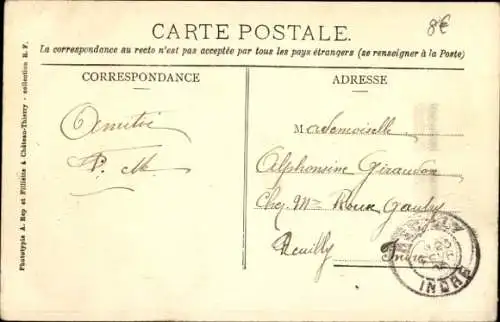 CARTE POSTALE.
8€
La correspondance au recto n'est pas acceptée par tous les pays étrangers (se renseigner à la Poste)
CORRESPONDANCE
ADRESSE
Amitié
Mademoiselle
Alphonsine Giraudon
Chez Mme Roux
Reuilly
Indre
INDRE
Phototypie A. Rep et Filliette à Château-Thierry - collection R. F.